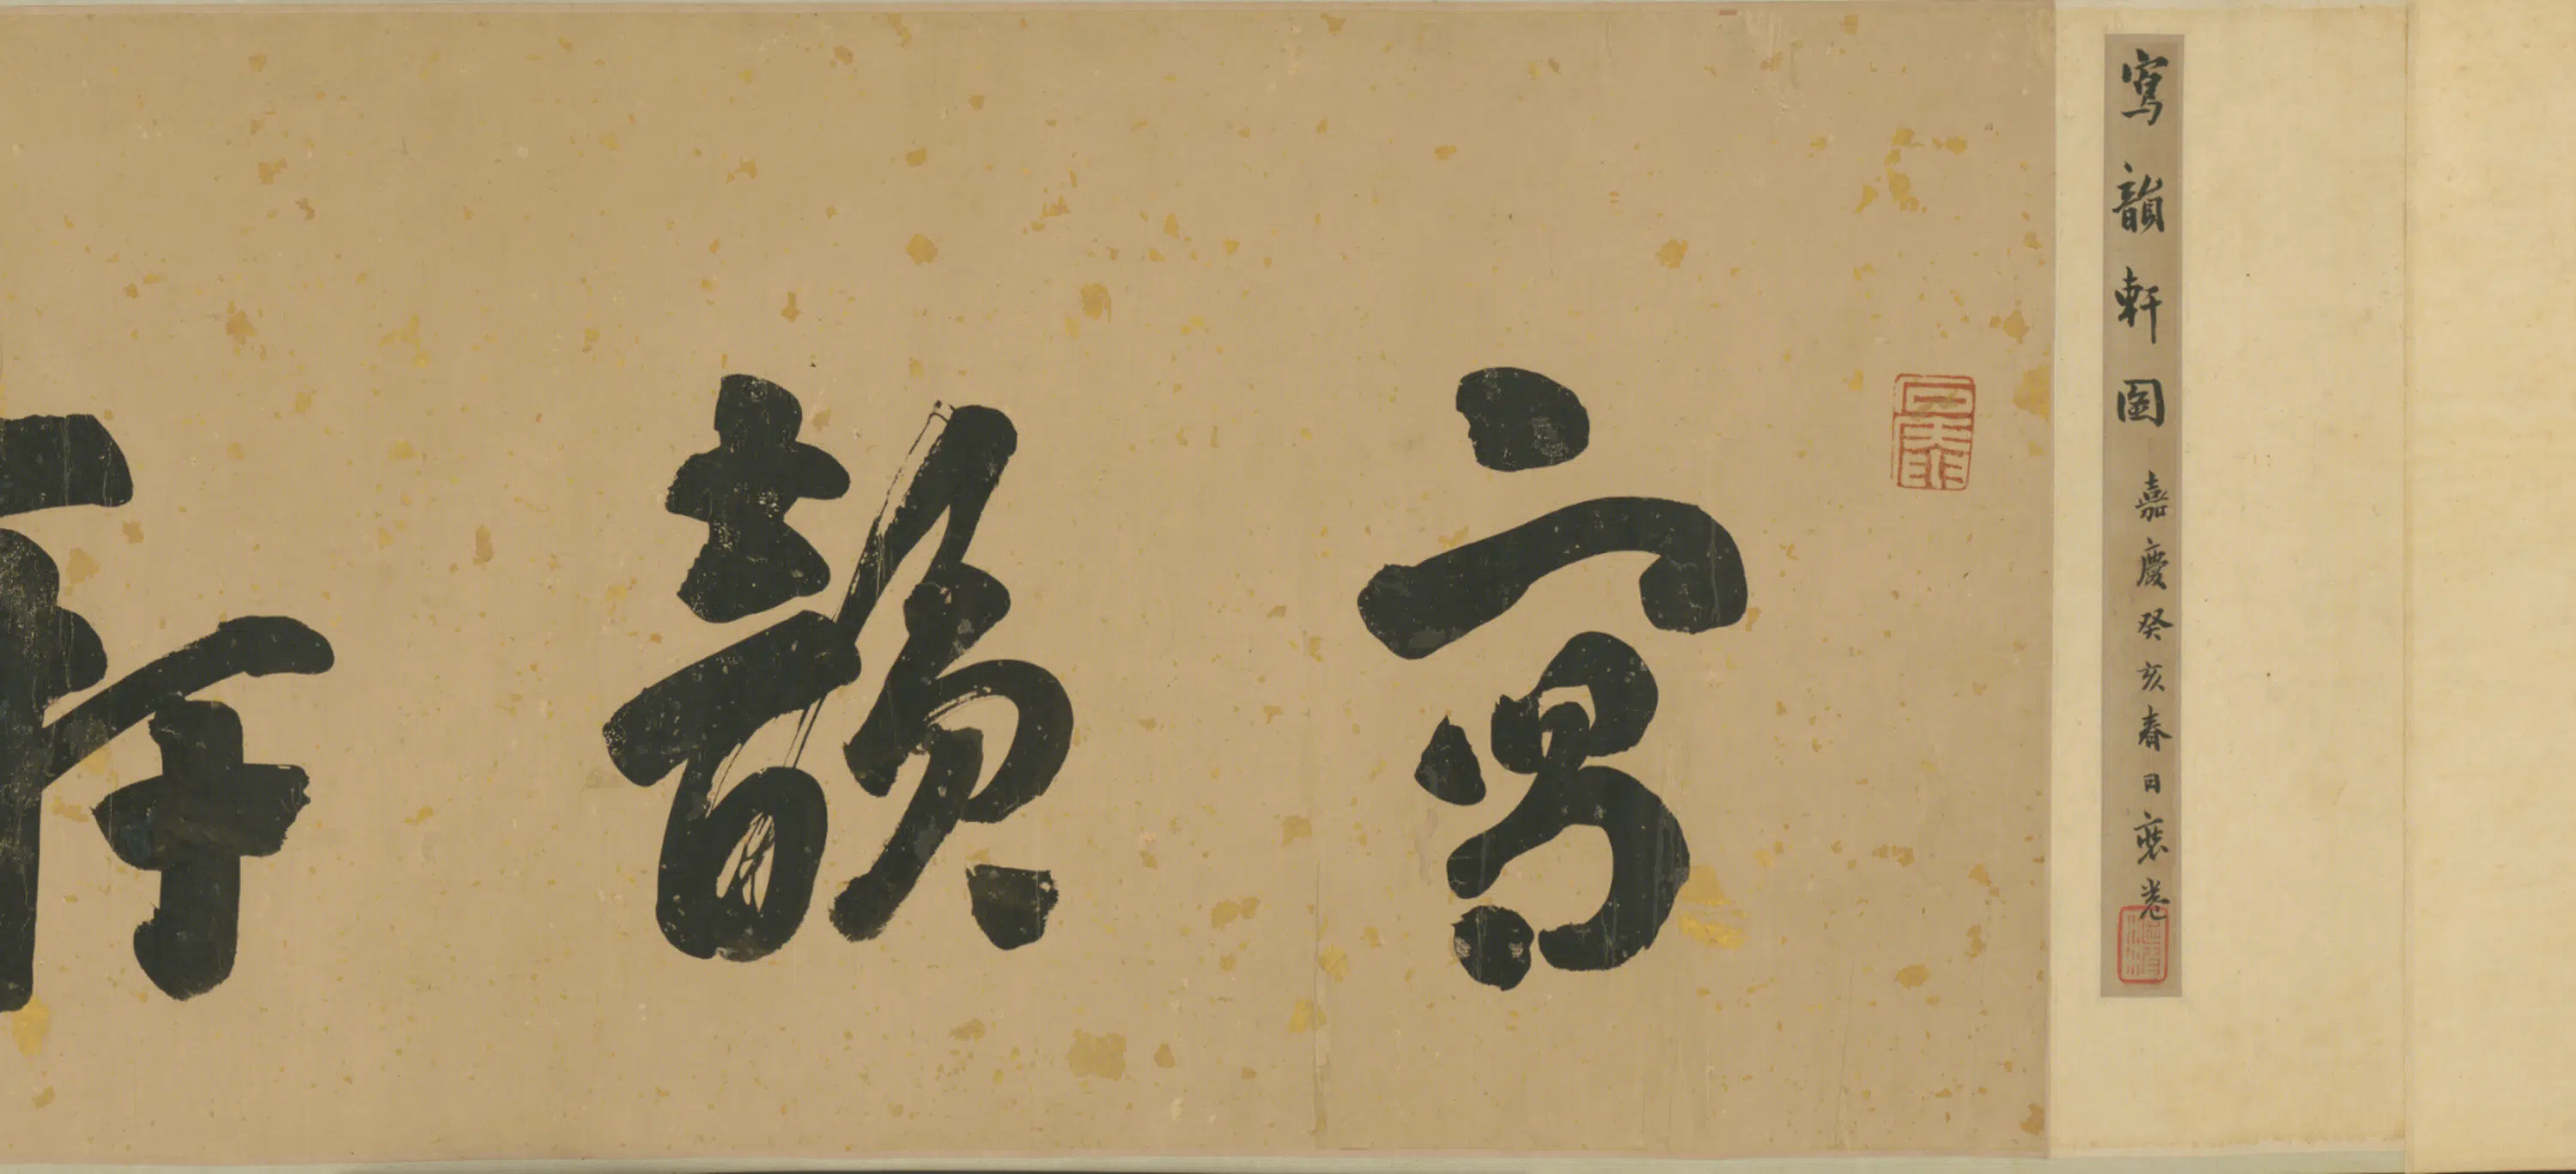 寫韻軒圖 嘉慶癸亥春日裝卷
寫韻軒